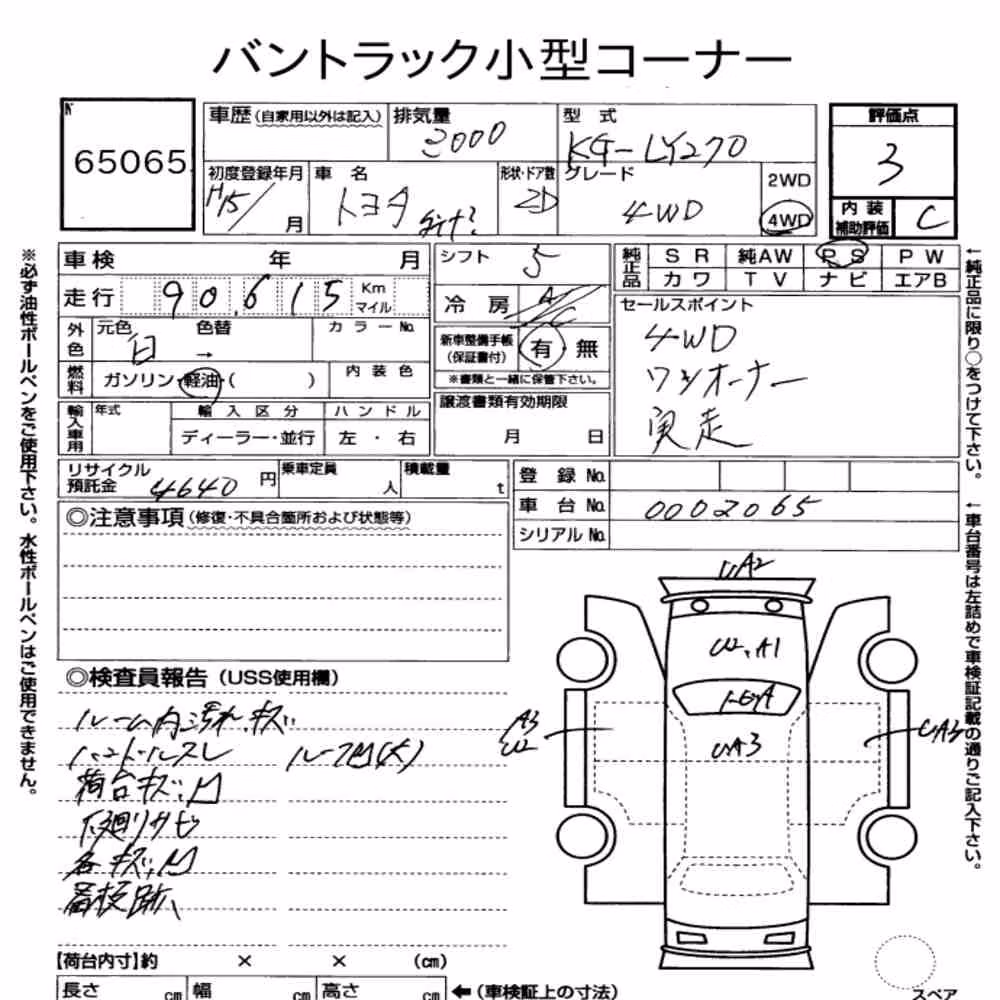 バントラック小型コーナー
No
65065
車歴 (自家用以外は記入)
排気量
3000
型式
KG-LY270
評価点
3
内装
補助評価
C
初度登録年月
H15/ 月
車名
トヨタ
形状・ドア数
2D
グレード
4WD
2WD
4WD
車検 年 月
走行 90,615 Km
マイル
外色
元色
白
色替
→
カラーNo.
燃料
ガソリン・軽油・( )
内装色
輸入車用
年式
輸入区分
ディーラー・並行
ハンドル
左・右
シフト
5
冷房
A/C
新車整備手帳
(保証書付)
有 無
※書類と一緒に保管下さい。
譲渡書類有効期限
月 日
純正品
SR 純AW PS PW
カワ TV ナビ エアB
セールスポイント
4WD
ワンオーナー
実走
リサイクル
預託金
4640 円
乗車定員
人
積載量
t
登録No.
車台No. 0002065
シリアルNo.
◎注意事項 (修復・不具合箇所および状態等)
◎検査員報告 (USS使用欄)
ルーム内汚れ、キズ
ハンドルスレ
ルーフM(大)
荷台キズ、M
下廻りサビ
各キズ、M
UA2
U2、A1
トビA
UA3
A3
U2
UA3
スペア
【荷台内寸】約 × × (cm)
長さ cm 幅 cm 高さ cm
←(車検証上の寸法)
※必ず油性ボールペンをご使用下さい。水性ボールペンはご使用できません。
←純正品に限り○をつけて下さい。
←車台番号は左詰めで車検証記載の通りご記入下さい。